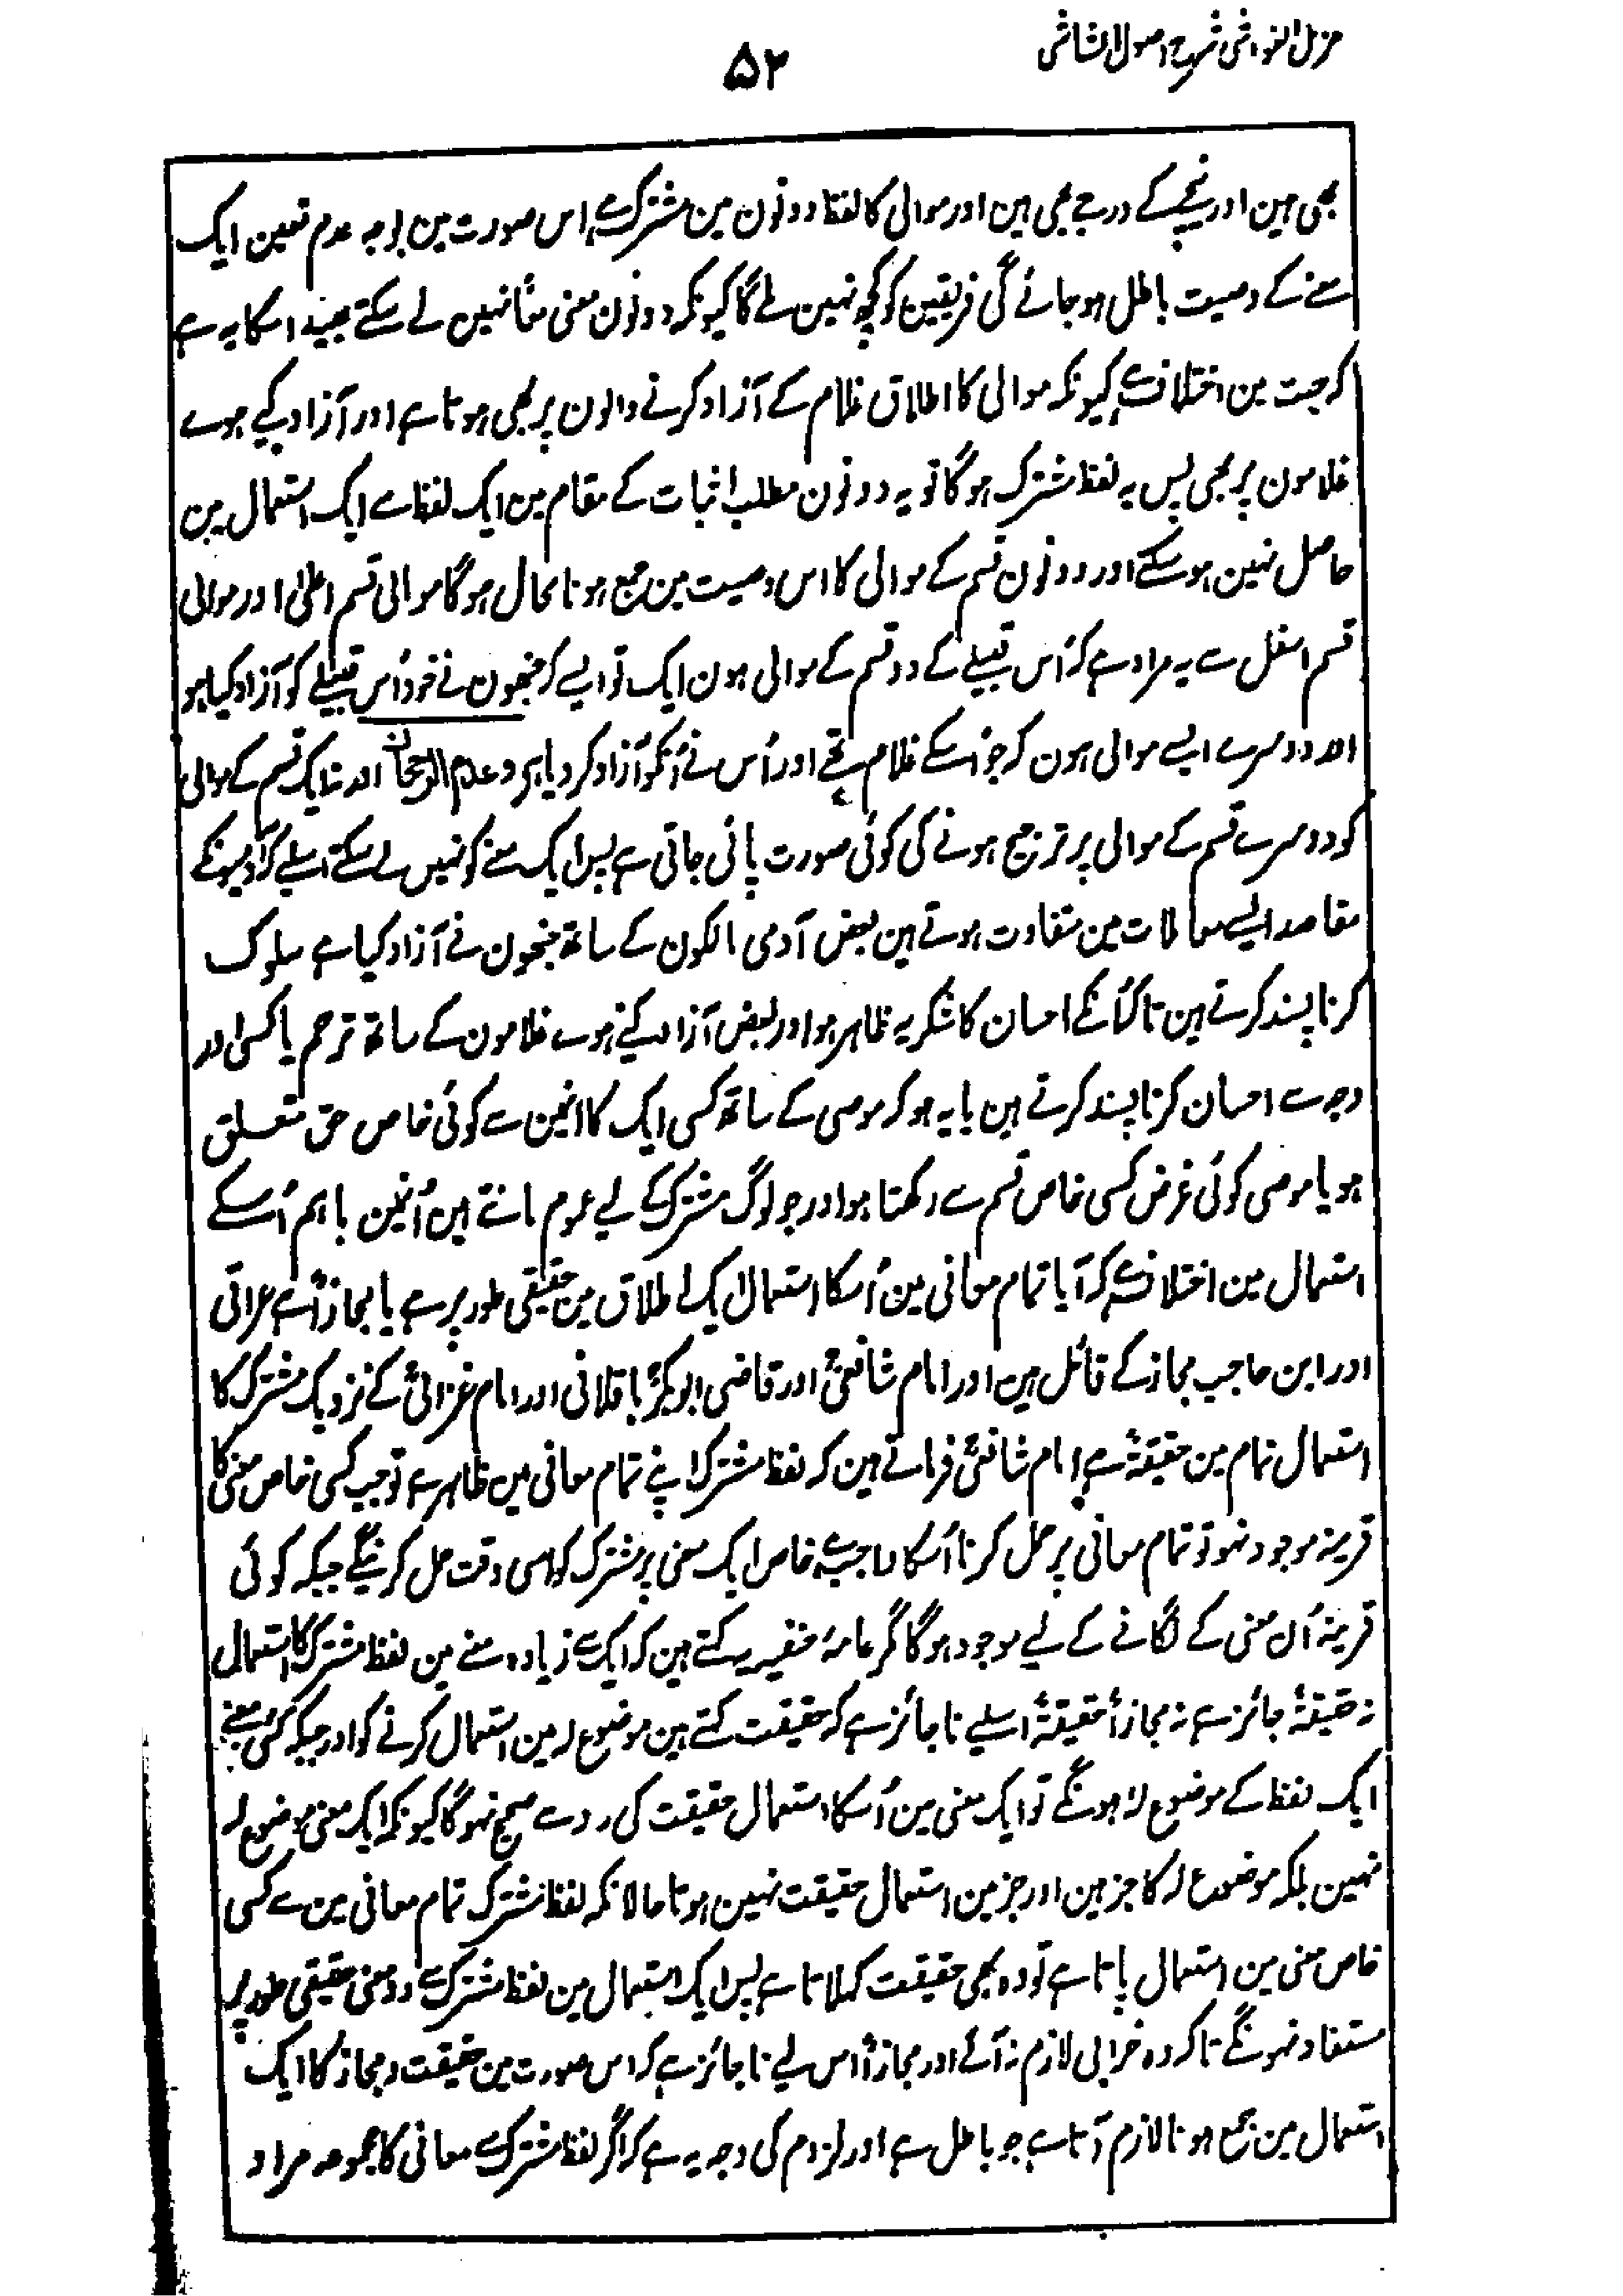 مزیل الغواشی شرح اصول الشاشی
۵۲
بھی ہین اور نیچے کے درجے بھی ہین اور موالی کا لفظ دونون مین مشترک ہے اس صورت مین بوجہ عدم تعین ایک
معنے کے وصیت باطل ہو جائے گی فریقین کو کچھ نہین ملے گا کیونکہ دونون معنی معًا نہیں لے سکتے بھید اسکا یہ ہے
کہ جہت مین اختلاف ہے کیونکہ موالی کا اطلاق غلام کے آزاد کرنے والون پر بھی ہوتا ہے اور آزاد کیے ہوے
غلامون پر بھی پس یہ لفظ مشترک ہو گا تو یہ دونون مطلب اثبات کے مقام مین ایک لفظ سے ایک استعمال مین
حاصل نہین ہو سکتے اور دونون قسم کے موالی کا اس وصیت مین جمع ہونا محال ہو گا موالی قسم اعلیٰ اور موالی
قسم اسفل سے یہ مراد ہے کہ اُس قبیلے کے دو قسم کے موالی ہون ایک تو ایسے کہ جنھون نے خود اُس قبیلے کو آزاد کیا ہو
اور دوسرے ایسے موالی ہون کہ جو اُسکے غلام تھے اور اُس نے اُنکو آزاد کر دیا ہو وعدم الرجحان اور نہ ایک قسم کے موالی
کو دوسرے قسم کے موالی پر ترجیح ہونے کی کوئی صورت پائی جاتی ہے پس ایک معنے کو نہیں لے سکتے اسلیے کہ آدمیونکے
مقاصد ایسے معاملات مین متفاوت ہوتے ہین بعض آدمی مالکون کے ساتھ جنھون نے آزاد کیا ہے سلوک
کرنا پسند کرتے ہین تاکہ اُنکے احسان کا شکریہ ظاہر ہو اور بعض آزاد کیے ہوے غلامون کے ساتھ ترحم یا کسی اور
وجہ سے احسان کرنا پسند کرتے ہین یا یہ ہو کہ موصی کے ساتھ کسی ایک کا انمین سے کوئی خاص حق متعلق
ہو یا موصی کوئی غرض کسی خاص قسم سے رکھتا ہو اور جو لوگ مشترک کے لیے عموم مانتے ہین اُنمین باہم اُسکے
استعمال مین اختلاف ہے کہ آیا تمام معانی مین اُسکا استعمال ایک اطلاق مین حقیقی طور پر ہے یا مجازًا ہے عراقی
اور ابن حاجب مجاز کے قائل ہین اور امام شافعیؒ اور قاضی ابوبکرؒ باقلانی اور امام غزالیؒ کے نزدیک مشترک کا
استعمال تمام مین حقیقۃً ہے امام شافعیؒ فرماتے ہین کہ لفظ مشترک اپنے تمام معانی میں ظاہر ہے توجب کسی خاص معنی کا
قرینہ موجود نہو تو تمام معانی پر حمل کرنا اُسکا واجب ہے خاص ایک معنی پر مشترک کو اسی وقت حمل کرینگے جبکہ کوئی
قرینہ اُن معنی کے لگانے کے لیے موجود ہو گا مگر عامۂ حنفیہ یہ کہتے ہین کہ ایک سے زیادہ معنے مین لفظ مشترک کا استعمال
نہ حقیقۃً جائز ہے نہ مجازًا حقیقۃً اسلیے ناجائز ہے کہ حقیقت کہتے ہین موضوع لہ مین استعمال کرنے کو اور جبکہ کئی معنے
ایک لفظ کے موضوع لہ ہونگے تو ایک معنی مین اُسکا استعمال حقیقت کی رو سے صحیح نہو گا کیونکہ ایک معنی موضوع لہ
نہین بلکہ موضوع لہ کا جز ہین اور جز مین استعمال حقیقت نہین ہوتا حالانکہ لفظ مشترک تمام معانی مین سے کسی
خاص معنی مین استعمال پاتا ہے تو وہ بھی حقیقت کہلاتا ہے پس ایک استعمال مین لفظ مشترک سے دو معنی حقیقی طور پر
مستفاد نہونگے تاکہ وہ خرابی لازم نہ آئے اور مجازًا اس لیے ناجائز ہے کہ اس صورت مین حقیقت و مجاز کا ایک
استعمال مین جمع ہونا لازم آتا ہے جو باطل ہے اور لزوم کی وجہ یہ ہے کہ اگر لفظ مشترک سے معانی کا مجموعہ مراد